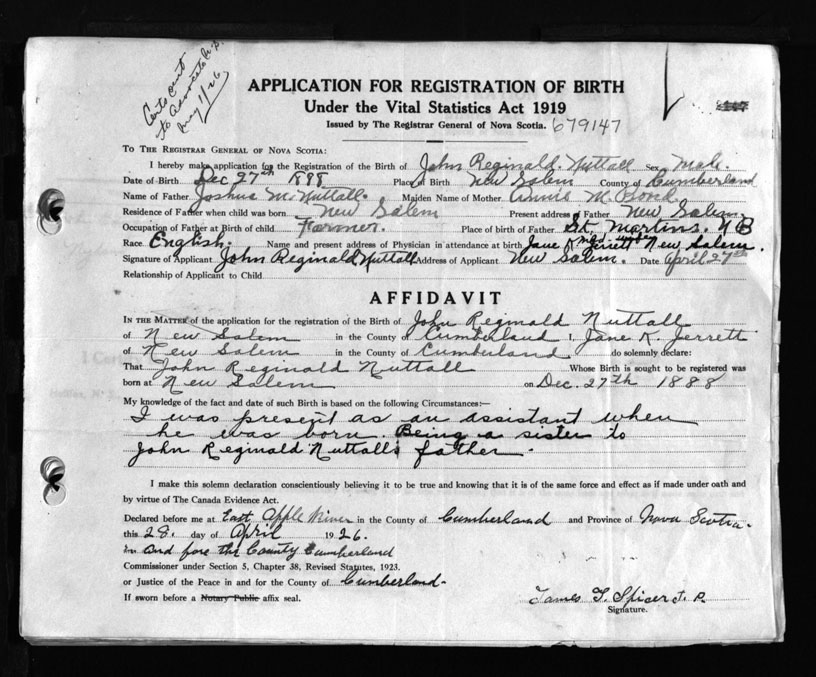 Certs sent
to Advocate N.S.
May 1/26
APPLICATION FOR REGISTRATION OF BIRTH
Under the Vital Statistics Act 1919
Issued by The Registrar General of Nova Scotia. 679147
TO THE REGISTRAR GENERAL OF NOVA SCOTIA:
I hereby make application for the Registration of the Birth of John Reginald Nuttall Sex Male.
Date of Birth Dec 27th 1888 Place of Birth New Salem County of Cumberland
Name of Father Joshua M. Nuttall Maiden Name of Mother Annie M. Bond
Residence of Father when child was born New Salem Present address of Father New Salem.
Occupation of Father at Birth of child Farmer. Place of birth of Father St. Martins. N B
Race English. Name and present address of Physician in attendance at birth Jane K Jerrett New Salem.
Signature of Applicant John Reginald Nuttall Address of Applicant New Salem. Date April 27th
Relationship of Applicant to Child
AFFIDAVIT
IN THE MATTER of the application for the registration of the Birth of John Reginald Nuttall
of New Salem in the County of Cumberland I, Jane K. Jerrett
of New Salem in the County of Cumberland do solemnly declare:
That John Reginald Nuttall Whose Birth is sought to be registered was
born at New Salem on Dec. 27th 1888
My knowledge of the fact and date of such Birth is based on the following Circumstances:—
I was present as an assistant when
he was born. Being a sister to
John Reginald Nuttall's father.
I make this solemn declaration conscientiously believing it to be true and knowing that it is of the same force and effect as if made under oath and
by virtue of The Canada Evidence Act.
Declared before me at East Apple River in the County of Cumberland and Province of Nova Scotia.
this 28. day of April 1926.
in and fore the County Cumberland
Commissioner under Section 5, Chapter 38, Revised Statutes, 1923.
or Justice of the Peace in and for the County of Cumberland.
If sworn before a Notary Public affix seal.
James T. Spicer J. P.
Signature.